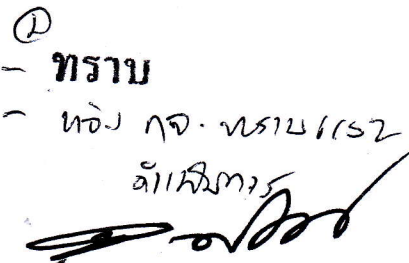 ①
- ทราบ
- แจ้ง กจ. ทราบและ
ดำเนินการ